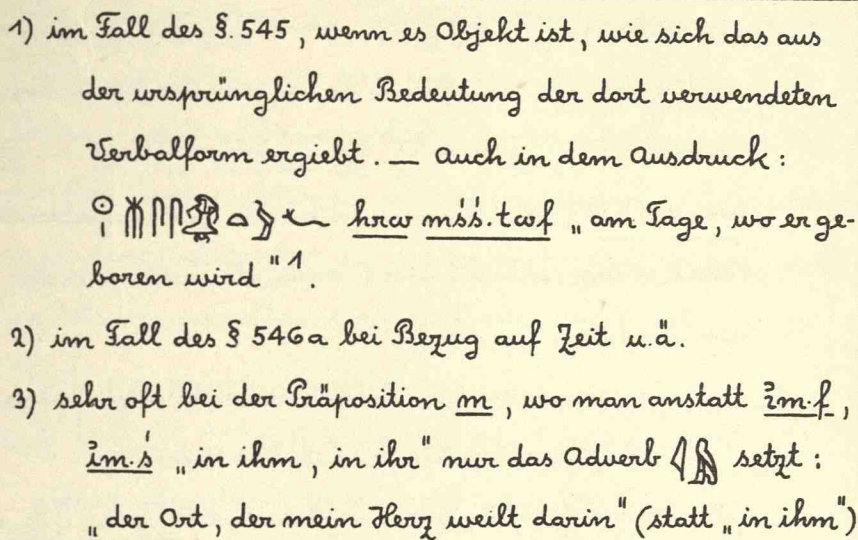 1) im Fall des §. 545, wenn es Objekt ist, wie sich das aus
der ursprünglichen Bedeutung der dort verwendeten
Verbalform ergiebt. — Auch in dem Ausdruck:
hrw mśś.twf „am Tage, wo er ge-
boren wird"¹.
2) im Fall des § 546a bei Bezug auf Zeit u.ä.
3) sehr oft bei der Präposition m, wo man anstatt ꞽm.f,
ꞽm.ś „in ihm, in ihr" nur das Adverb setzt:
„der Ort, der mein Herz weilt darin" (statt „in ihm")